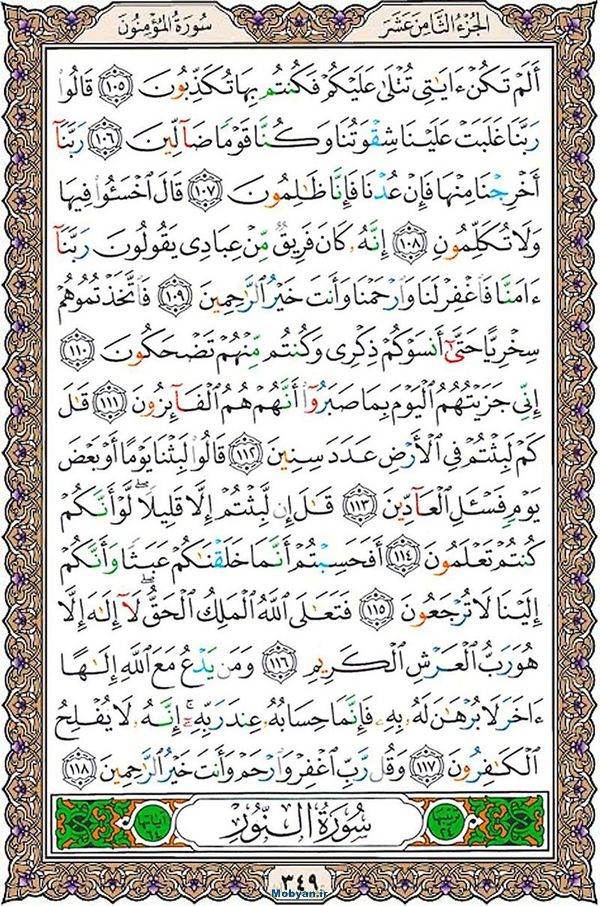 الجزء الثامن عشر
سورة المؤمنون
أَلَمْ تَكُنْ ءَايَٰتِى تُتْلَىٰ عَلَيْكُمْ فَكُنتُم بِهَا تُكَذِّبُونَ ﴿١٠٥﴾ قَالُوا۟
رَبَّنَا غَلَبَتْ عَلَيْنَا شِقْوَتُنَا وَكُنَّا قَوْمًا ضَآلِّينَ ﴿١٠٦﴾ رَبَّنَآ
أَخْرِجْنَا مِنْهَا فَإِنْ عُدْنَا فَإِنَّا ظَٰلِمُونَ ﴿١٠٧﴾ قَالَ ٱخْسَـُٔوا۟ فِيهَا
وَلَا تُكَلِّمُونِ ﴿١٠٨﴾ إِنَّهُۥ كَانَ فَرِيقٌ مِّنْ عِبَادِى يَقُولُونَ رَبَّنَآ
ءَامَنَّا فَٱغْفِرْ لَنَا وَٱرْحَمْنَا وَأَنتَ خَيْرُ ٱلرَّٰحِمِينَ ﴿١٠٩﴾ فَٱتَّخَذْتُمُوهُمْ
سِخْرِيًّا حَتَّىٰٓ أَنسَوْكُمْ ذِكْرِى وَكُنتُم مِّنْهُمْ تَضْحَكُونَ ﴿١١٠﴾
إِنِّى جَزَيْتُهُمُ ٱلْيَوْمَ بِمَا صَبَرُوٓا۟ أَنَّهُمْ هُمُ ٱلْفَآئِزُونَ ﴿١١١﴾ قَٰلَ
كَمْ لَبِثْتُمْ فِى ٱلْأَرْضِ عَدَدَ سِنِينَ ﴿١١٢﴾ قَالُوا۟ لَبِثْنَا يَوْمًا أَوْ بَعْضَ
يَوْمٍ فَسْـَٔلِ ٱلْعَآدِّينَ ﴿١١٣﴾ قَٰلَ إِن لَّبِثْتُمْ إِلَّا قَلِيلًا ۖ لَّوْ أَنَّكُمْ
كُنتُمْ تَعْلَمُونَ ﴿١١٤﴾ أَفَحَسِبْتُمْ أَنَّمَا خَلَقْنَٰكُمْ عَبَثًا وَأَنَّكُمْ
إِلَيْنَا لَا تُرْجَعُونَ ﴿١١٥﴾ فَتَعَٰلَى ٱللَّهُ ٱلْمَلِكُ ٱلْحَقُّ ۖ لَآ إِلَٰهَ إِلَّا
هُوَ رَبُّ ٱلْعَرْشِ ٱلْكَرِيمِ ﴿١١٦﴾ وَمَن يَدْعُ مَعَ ٱللَّهِ إِلَٰهًا
ءَاخَرَ لَا بُرْهَٰنَ لَهُۥ بِهِۦ فَإِنَّمَا حِسَابُهُۥ عِندَ رَبِّهِۦٓ ۚ إِنَّهُۥ لَا يُفْلِحُ
ٱلْكَٰفِرُونَ ﴿١١٧﴾ وَقُل رَّبِّ ٱغْفِرْ وَٱرْحَمْ وَأَنتَ خَيْرُ ٱلرَّٰحِمِينَ ﴿١١٨﴾
ترتيبها ٢٤
سُورَةُ ٱلنُّورِ
آياتها
٣٤٩
Mobyan.ir